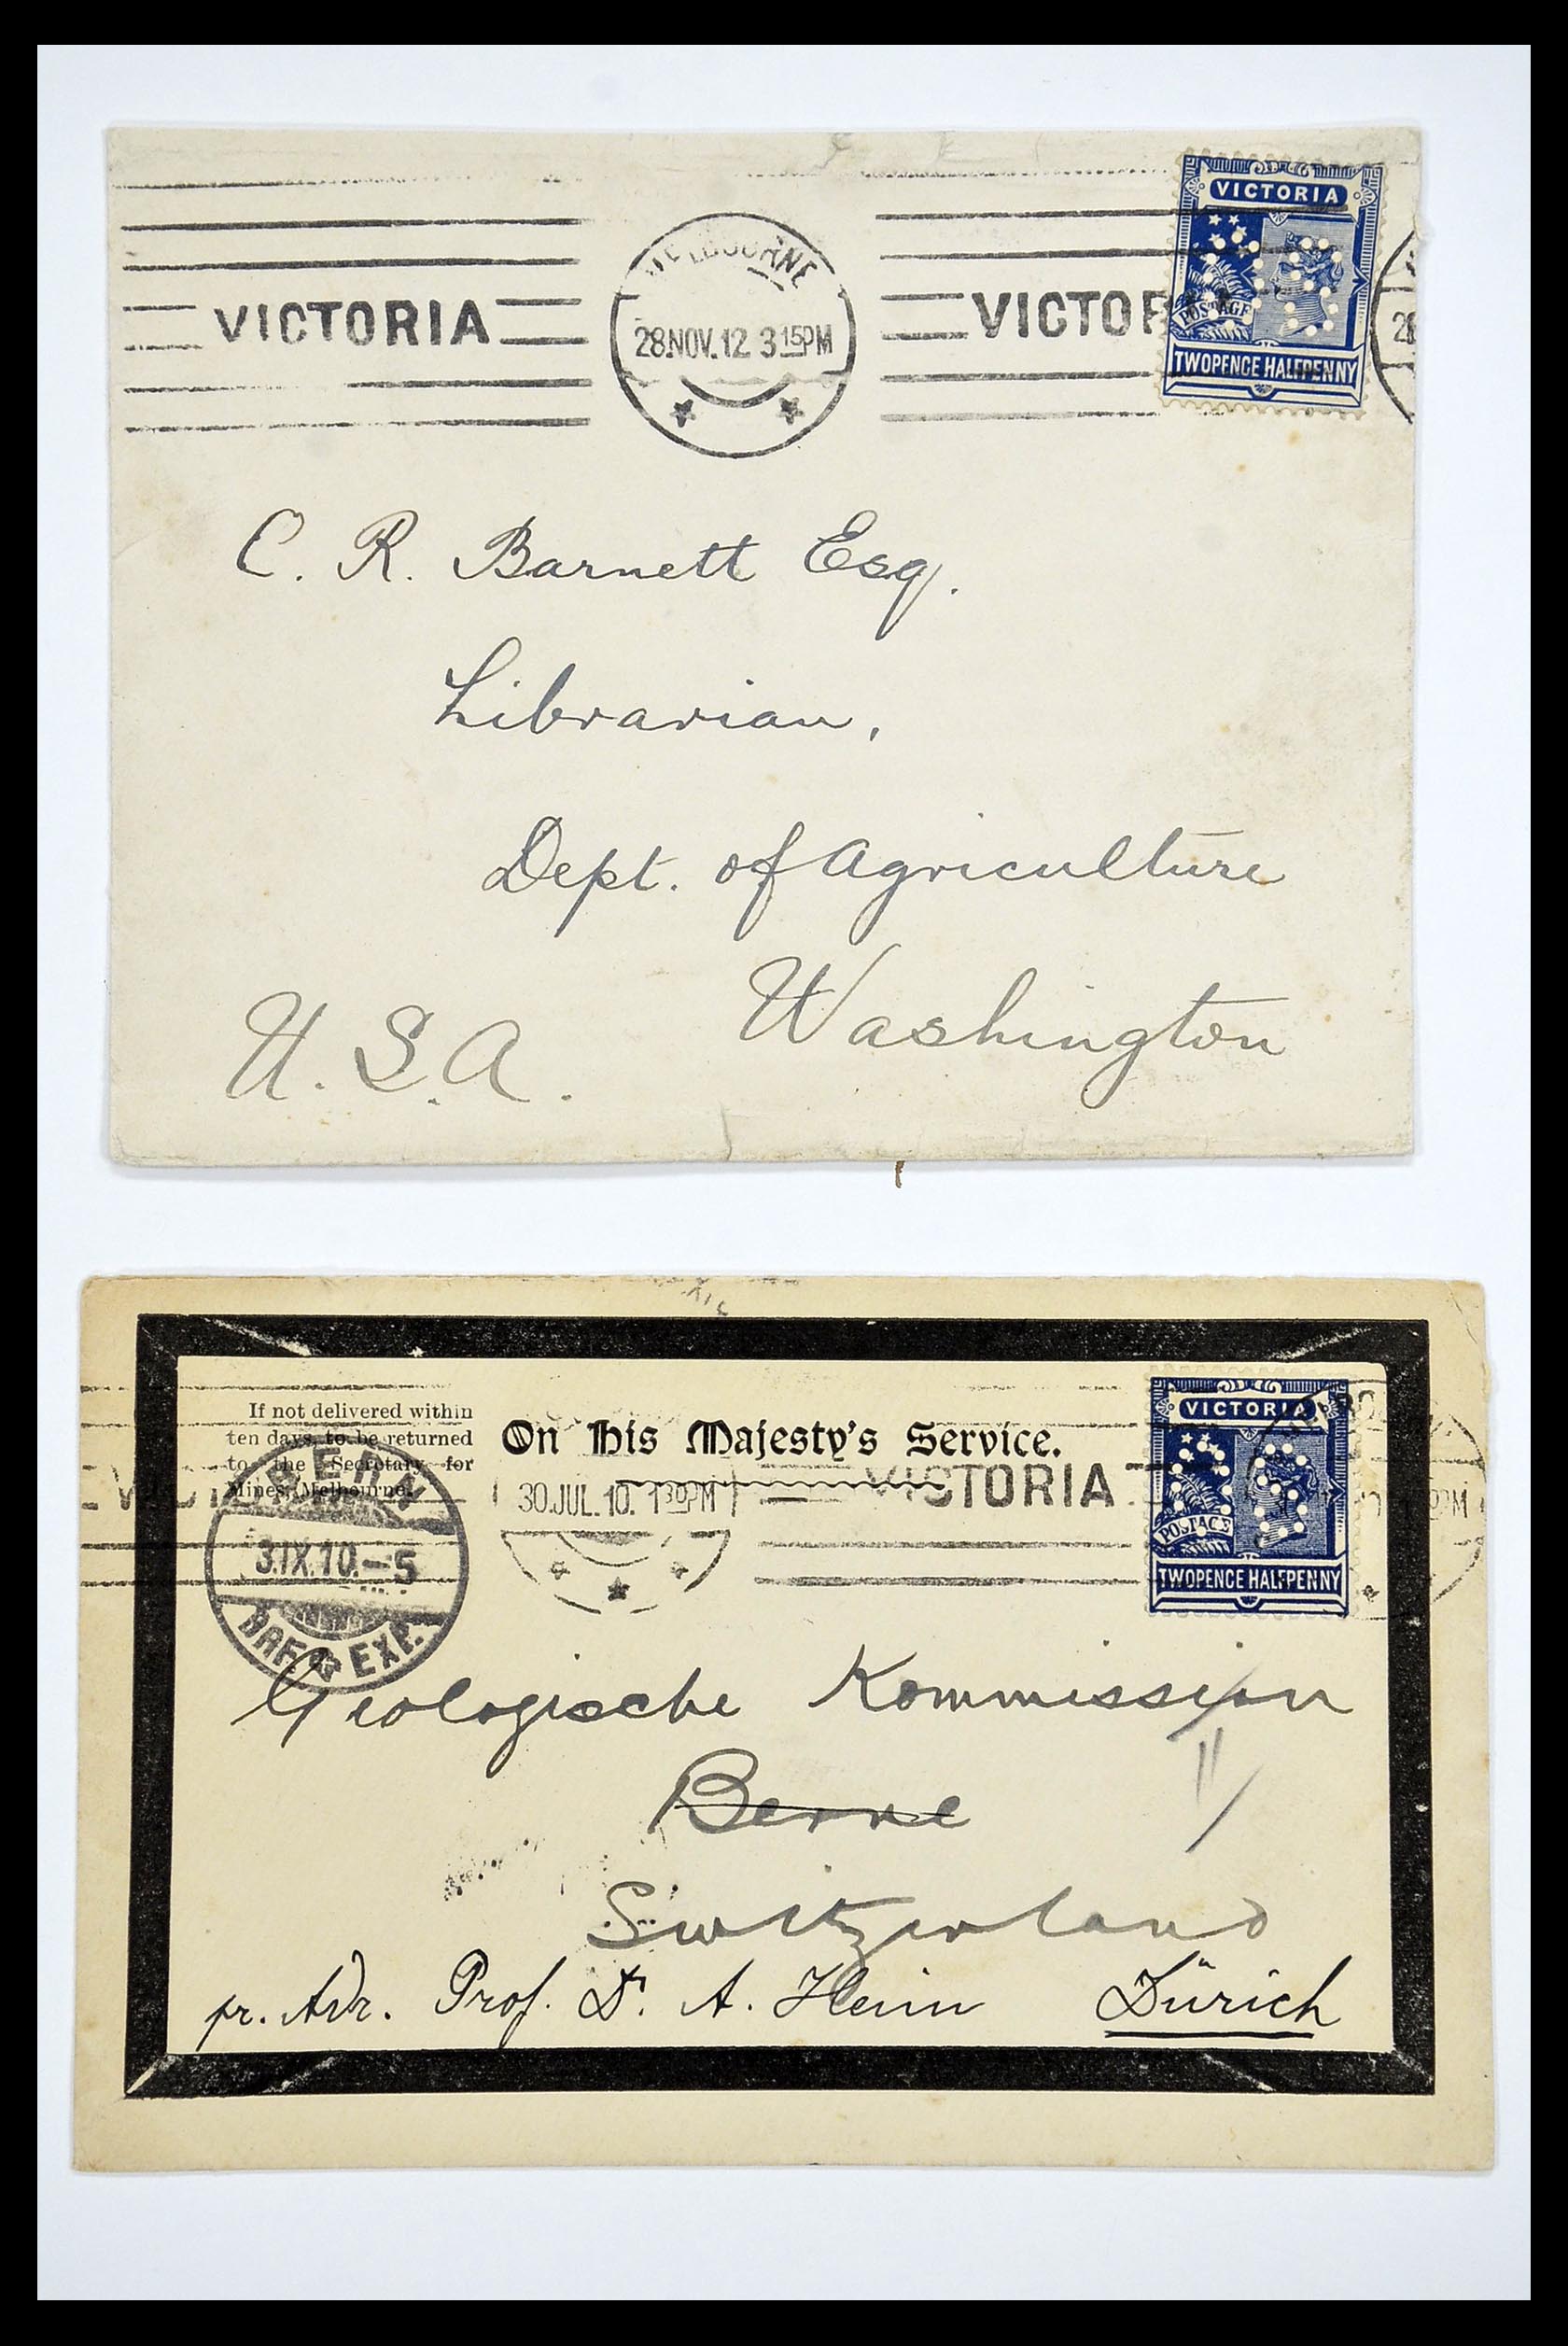 VICTORIA
MELBOURNE
28.NOV.12 3 15PM
VICTOR
VICTORIA
POSTAGE
TWOPENCE HALFPENNY
C. R. Barnett Esq.
Librarian,
Dept. of Agriculture
Washington
U.S.A.
If not delivered within
ten days, to be returned
to the Secretary for
Mines, Melbourne.
On His Majesty's Service.
VICTORIA
POSTAGE
TWOPENCE HALFPENNY
30.JUL.10. 1 30PM
VICTORIA
BERN
3.IX.10.–5
BRF. EXP.
Geologische Kommission
Berne
Switzerland
pr. Adr. Prof. Dr. A. Heim Zürich